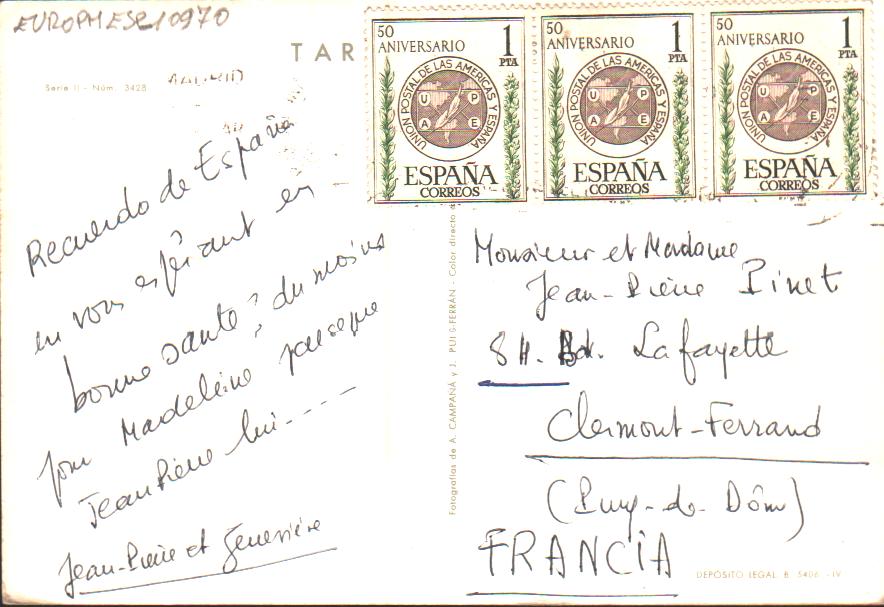 EUROPHESP10970
TAR
Serie II - Núm. 3428
MADRID
50
ANIVERSARIO
1
PTA
UNION POSTAL DE LAS AMERICAS Y ESPAÑA
U P
A E
ESPAÑA
CORREOS
50
ANIVERSARIO
1
PTA
UNION POSTAL DE LAS AMERICAS Y ESPAÑA
U P
A E
ESPAÑA
CORREOS
50
ANIVERSARIO
1
PTA
UNION POSTAL DE LAS AMERICAS Y ESPAÑA
U P
A E
ESPAÑA
CORREOS
Recuerdo de España
en vous espérant en
bonne santé, du moins
pour Madeleine parceque
Jean Pierre lui----
Jean-Pierre et Geneviève
Fotografías de A. CAMPAÑÁ y J. PUIG-FERRÁN - Color directo
Monsieur et Madame
Jean-Pierre Pinet
Bd. Lafayette
Clermont-Ferrand
(Puy-de-Dôm)
FRANCIA
DEPÓSITO LEGAL B. 5406 -IV